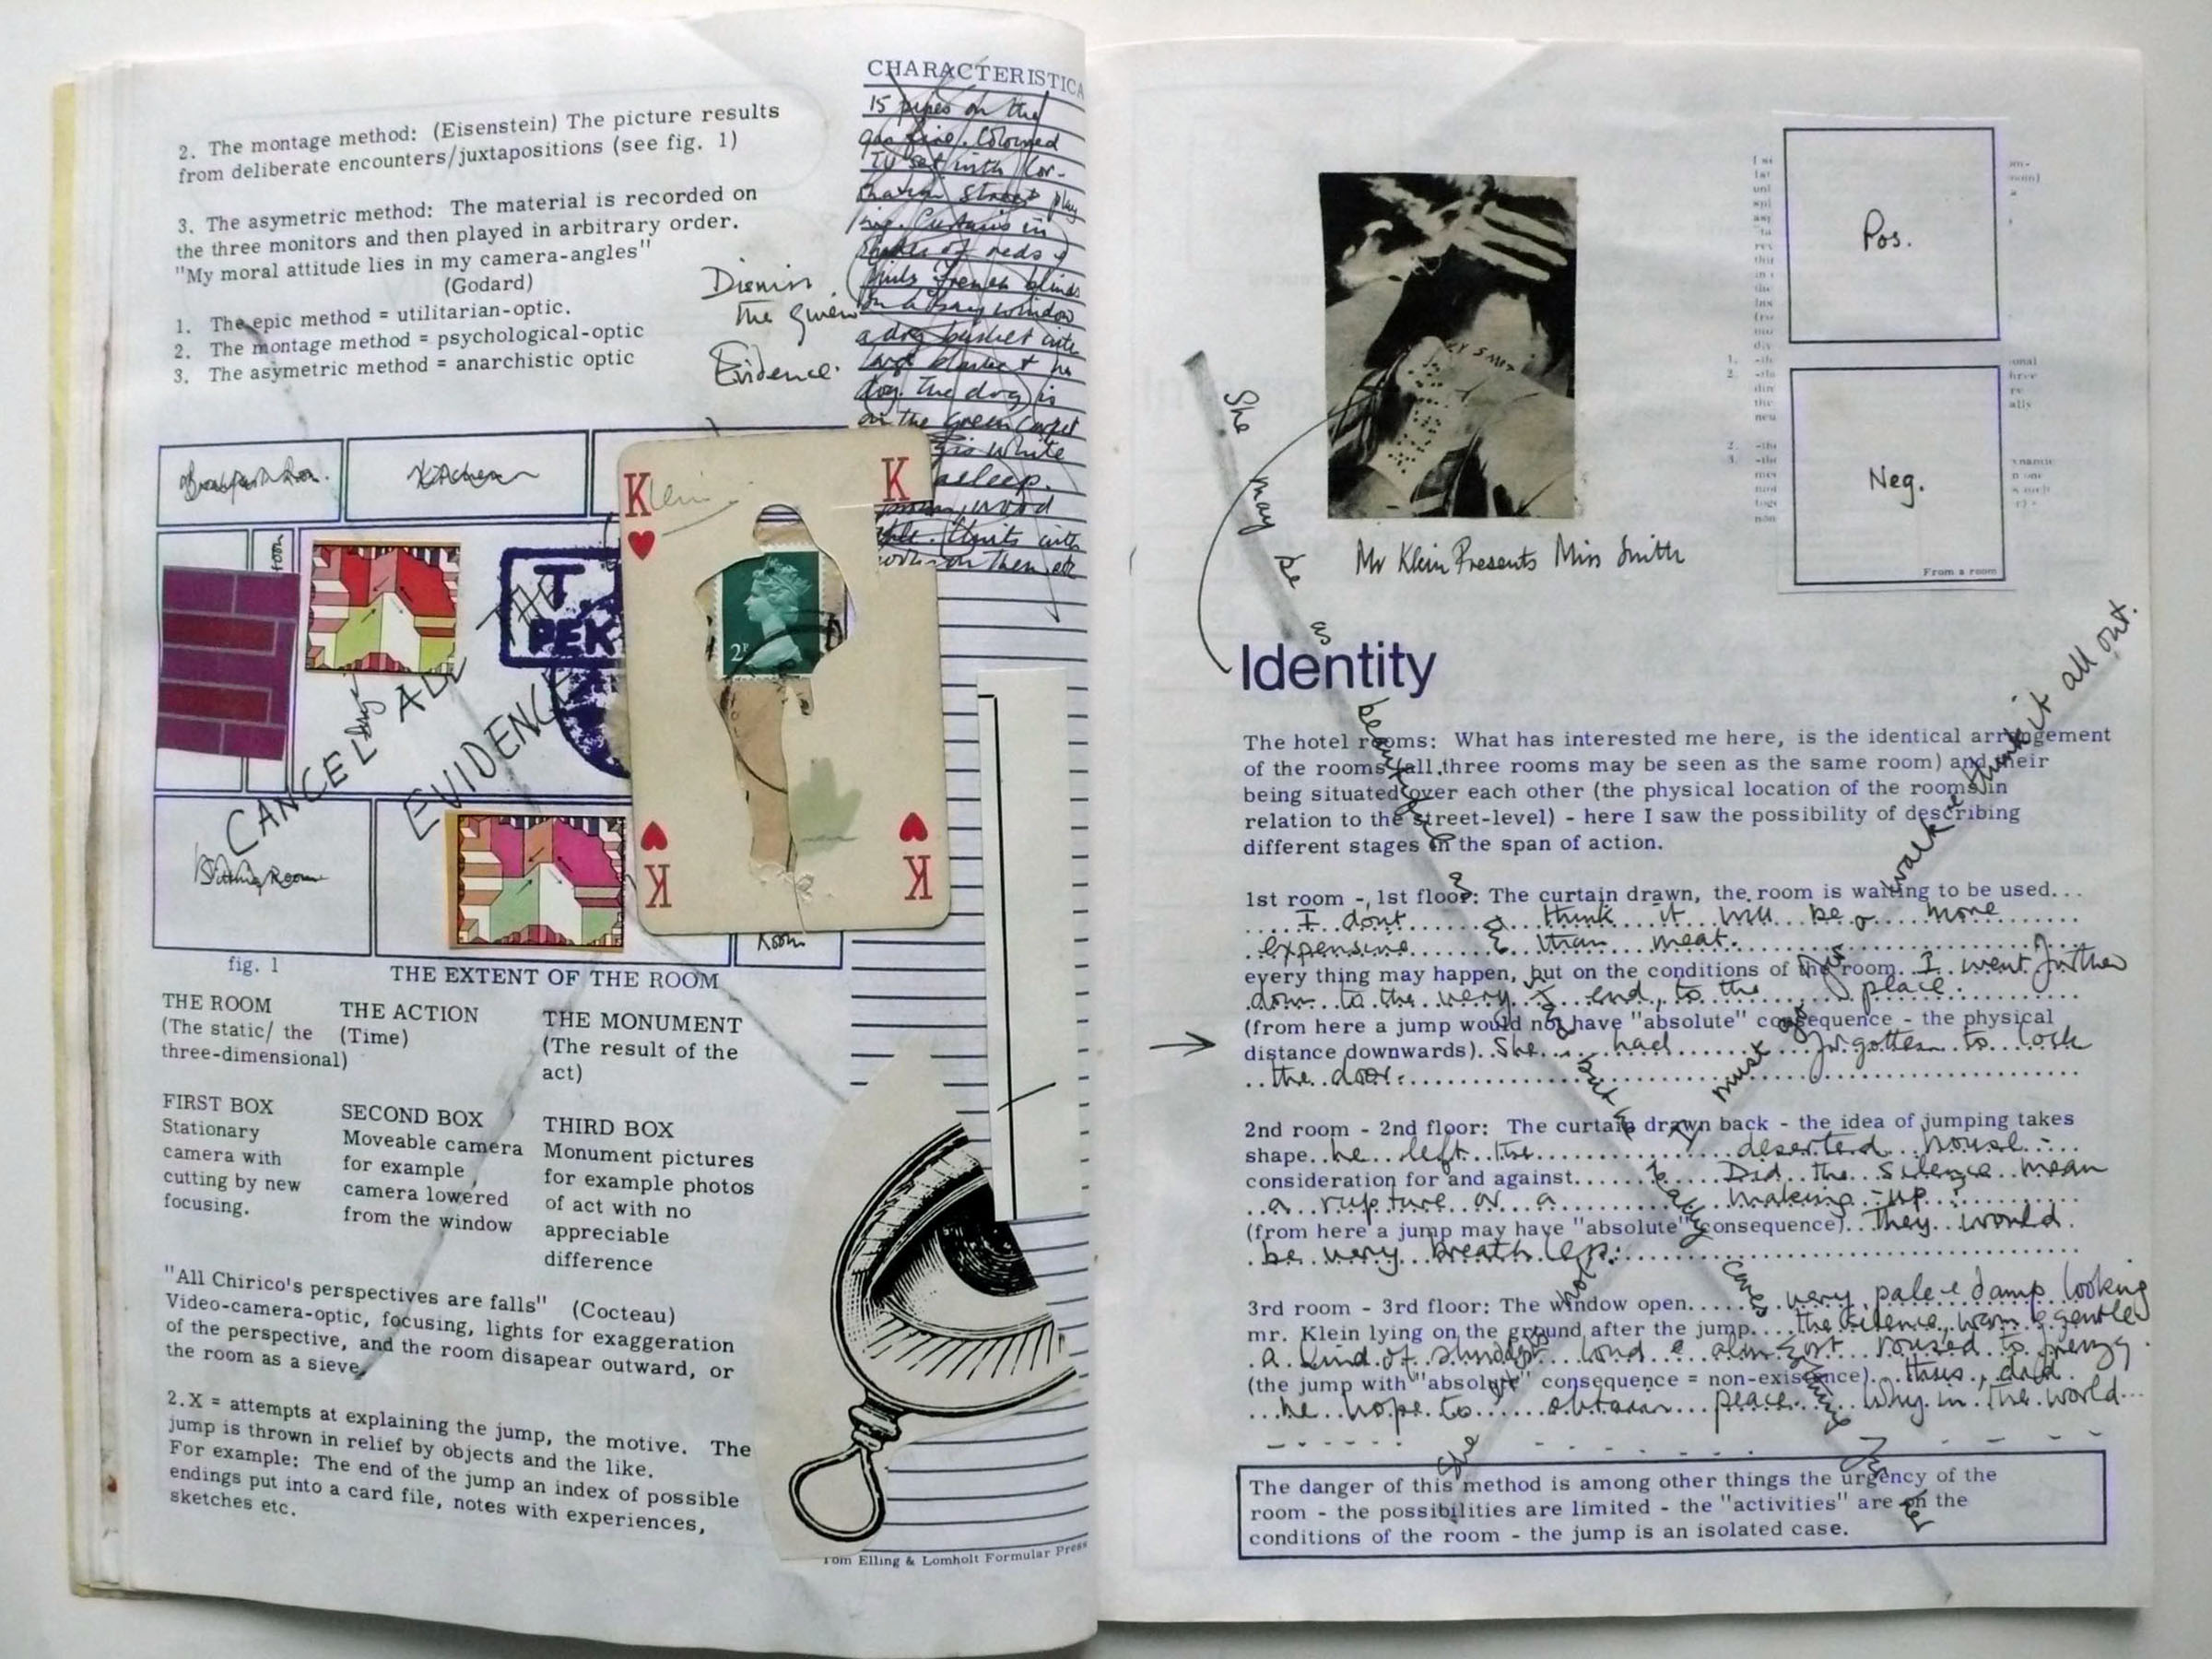 2. The montage method: (Eisenstein) The picture results
from deliberate encounters/juxtapositions (see fig. 1)
3. The asymetric method: The material is recorded on
the three monitors and then played in arbitrary order.
"My moral attitude lies in my camera-angles"
(Godard)
1. The epic method = utilitarian-optic.
2. The montage method = psychological-optic
3. The asymetric method = anarchistic optic
Dismiss
the given
Evidence.
CHARACTERISTICA
15 pipes on the
gas fire. Coloured
TV set with Cor-
street play
Curtains in
shades of reds &
French blinds
on a bay window
a dog basket with
blanket & no
dog. The dog is
on the green carpet
is white
asleep.
wood
with
on them etc
Kitchen
K
Klein
K
2P
T.
PEK
CANCEL ALL THE
EVIDENCE
Sitting Room
Room
K
K
fig. 1
THE EXTENT OF THE ROOM
THE ROOM
(The static/ the
three-dimensional)
THE ACTION
(Time)
THE MONUMENT
(The result of the
act)
FIRST BOX
Stationary
camera with
cutting by new
focusing.
SECOND BOX
Moveable camera
for example
camera lowered
from the window
THIRD BOX
Monument pictures
for example photos
of act with no
appreciable
difference
"All Chirico's perspectives are falls" (Cocteau)
Video-camera-optic, focusing, lights for exaggeration
of the perspective, and the room disapear outward, or
the room as a sieve
2.X = attempts at explaining the jump, the motive. The
jump is thrown in relief by objects and the like.
For example: The end of the jump an index of possible
endings put into a card file, notes with experiences,
sketches etc.
Tom Elling & Lomholt Formular Press
Pos.
Neg.
From a room
Mr Klein Presents Miss Smith
She may be as beautiful
Identity
The hotel rooms: What has interested me here, is the identical arrangement
of the rooms (all three rooms may be seen as the same room) and their
being situated over each other (the physical location of the rooms in
relation to the street-level) - here I saw the possibility of describing
different stages in the span of action.
1st room - 1st floor: The curtain drawn, the room is waiting to be used...
I dont think it will be more
expensive than meat.
every thing may happen, but on the conditions of the room. I went further
down to the very end, to the place.
(from here a jump would not have "absolute" consequence - the physical
distance downwards). She had forgotten to lock
the door.
2nd room - 2nd floor: The curtain drawn back - the idea of jumping takes
shape he left the deserted house
consideration for and against Did the silence mean
a rupture or a making-up?
(from here a jump may have "absolute" consequence). They would
be very breathless.
3rd room - 3rd floor: The window open very pale & damp looking
mr. Klein lying on the ground after the jump. the silence, warm & gentle
a kind of loud & almost roused to frenzy.
(the jump with "absolute" consequence = non-existence). thus, did
he hope to obtain peace. Why in the world
must go walk & think it all out.
The danger of this method is among other things the urgency of the
room - the possibilities are limited - the "activities" are on the
conditions of the room - the jump is an isolated case.